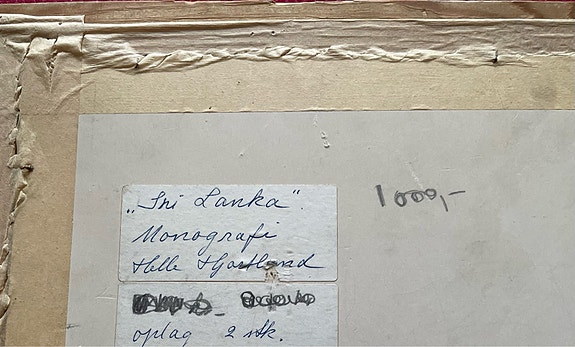 „Sri Lanka".
Monografi
Helle Hjortlund
1000,-
oplag 2 stk.